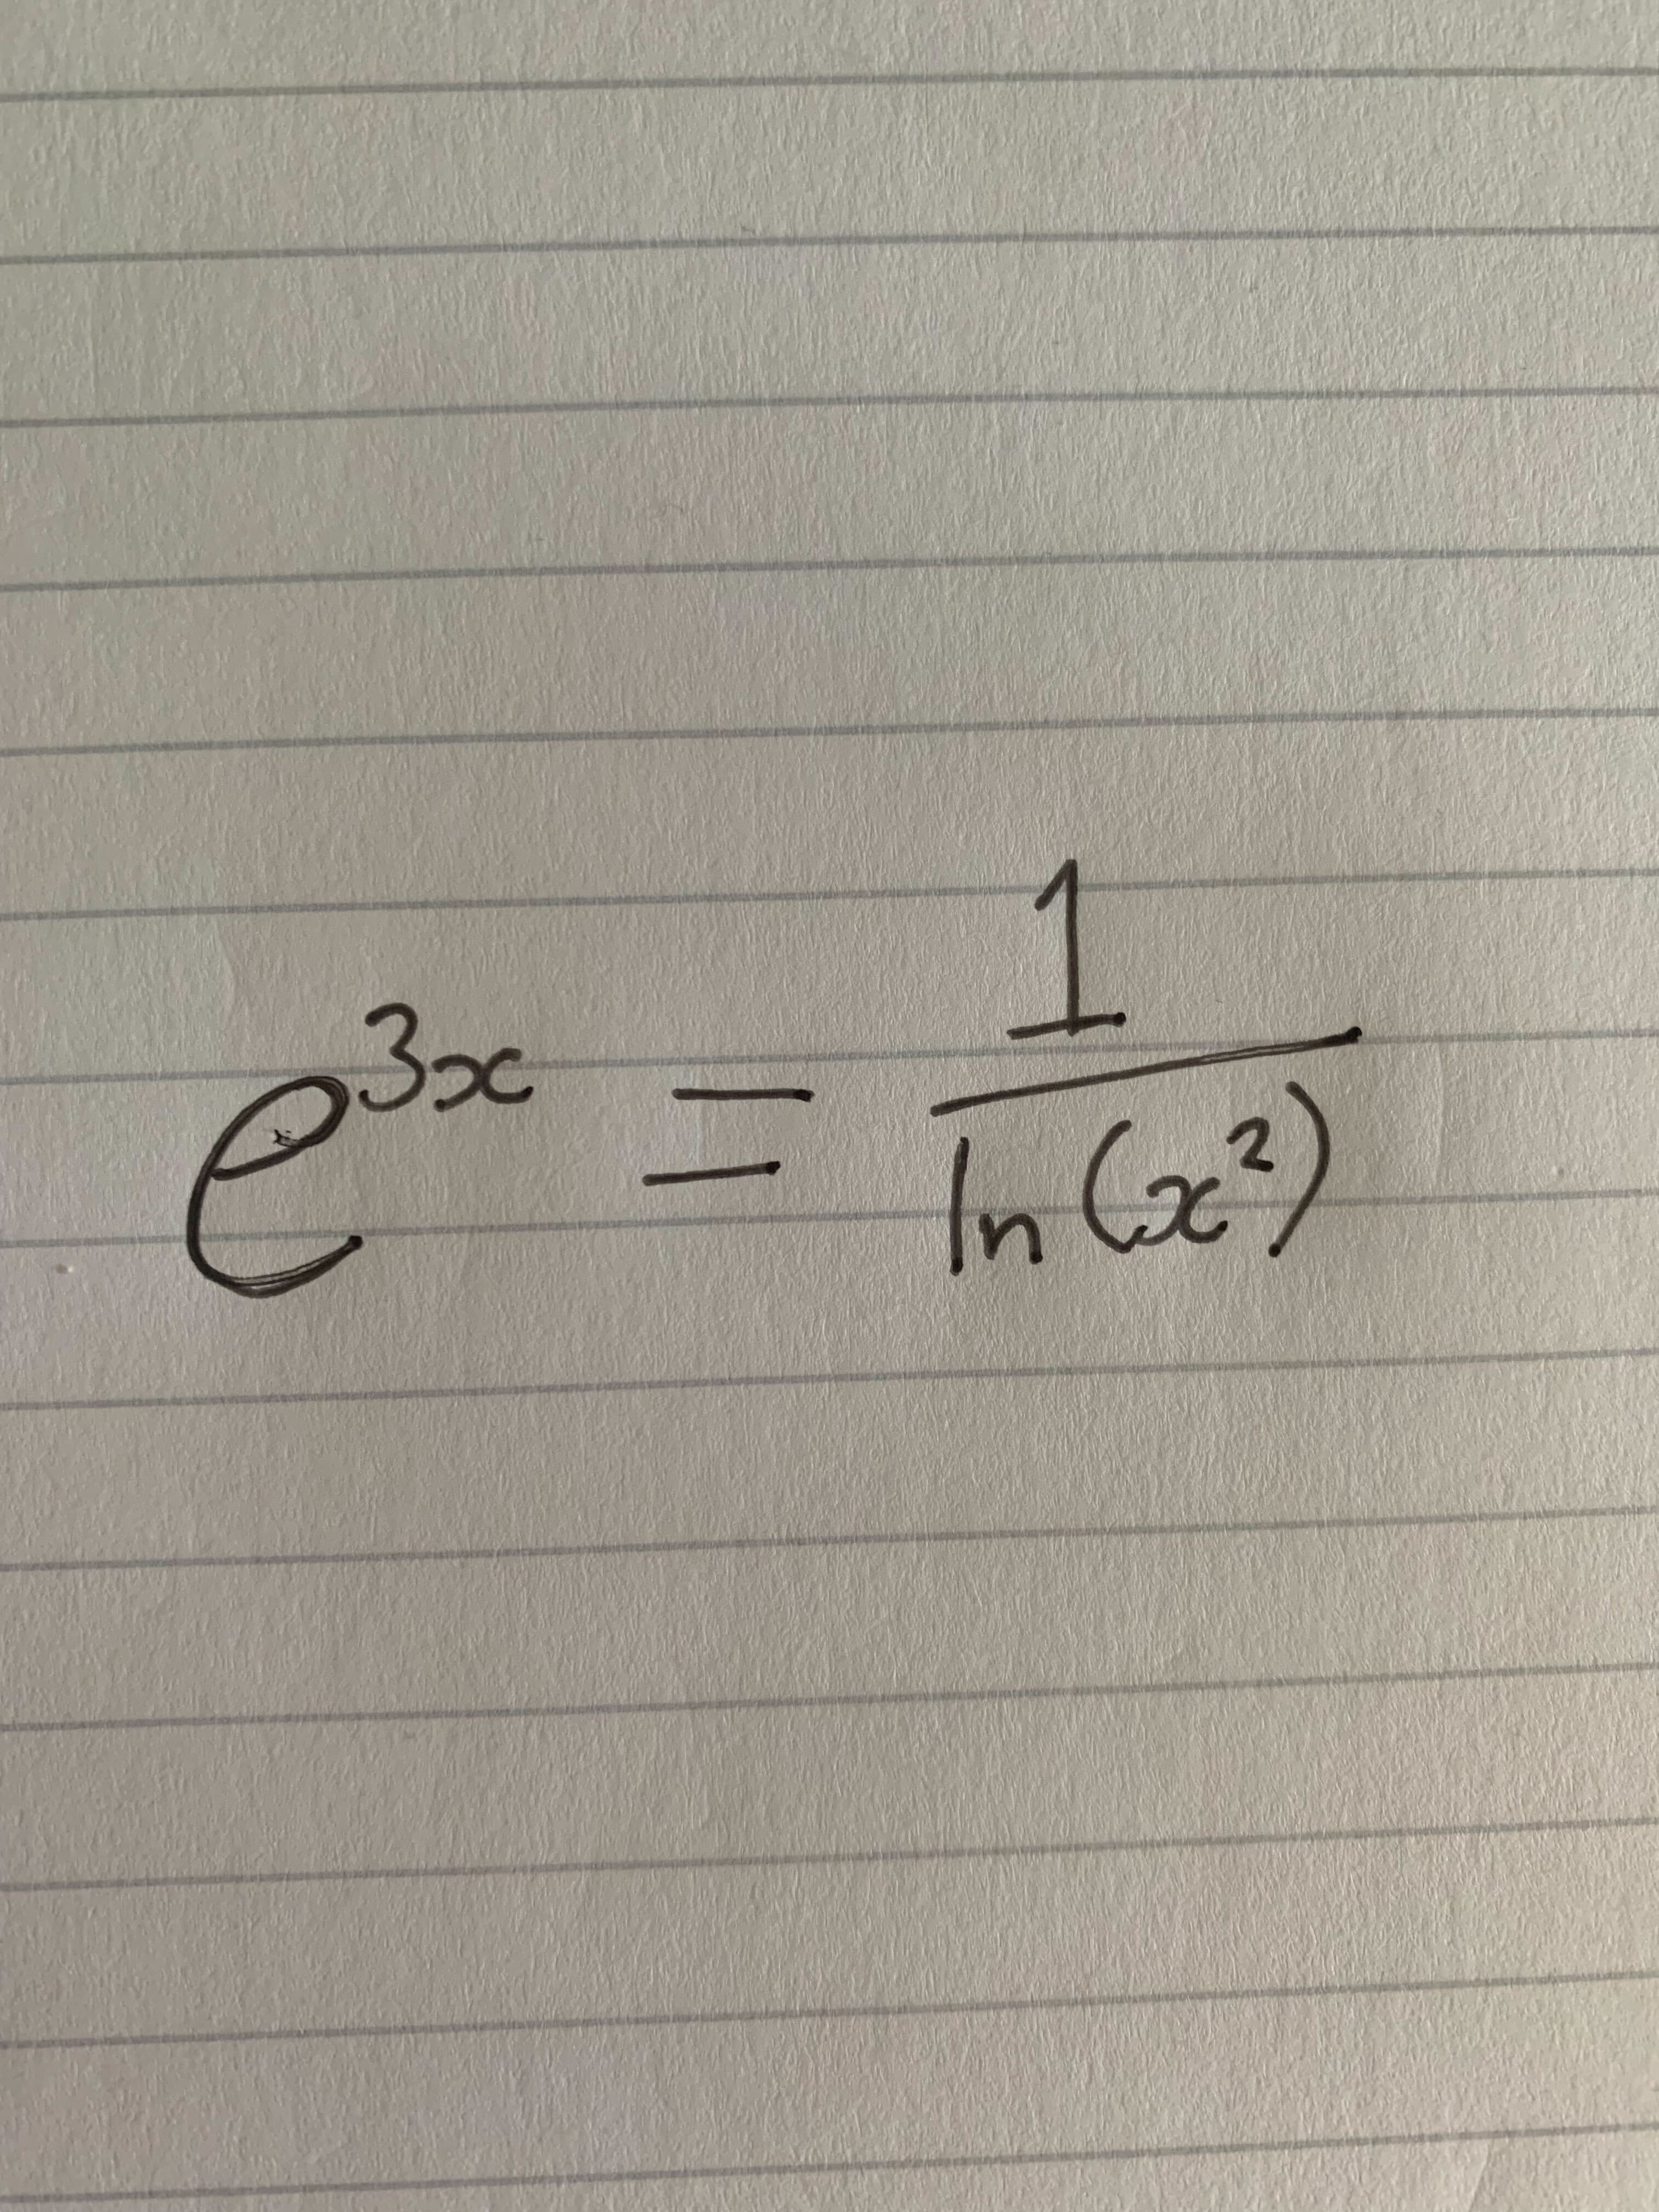 e^{3x} = \frac{1}{\ln(x^2)}